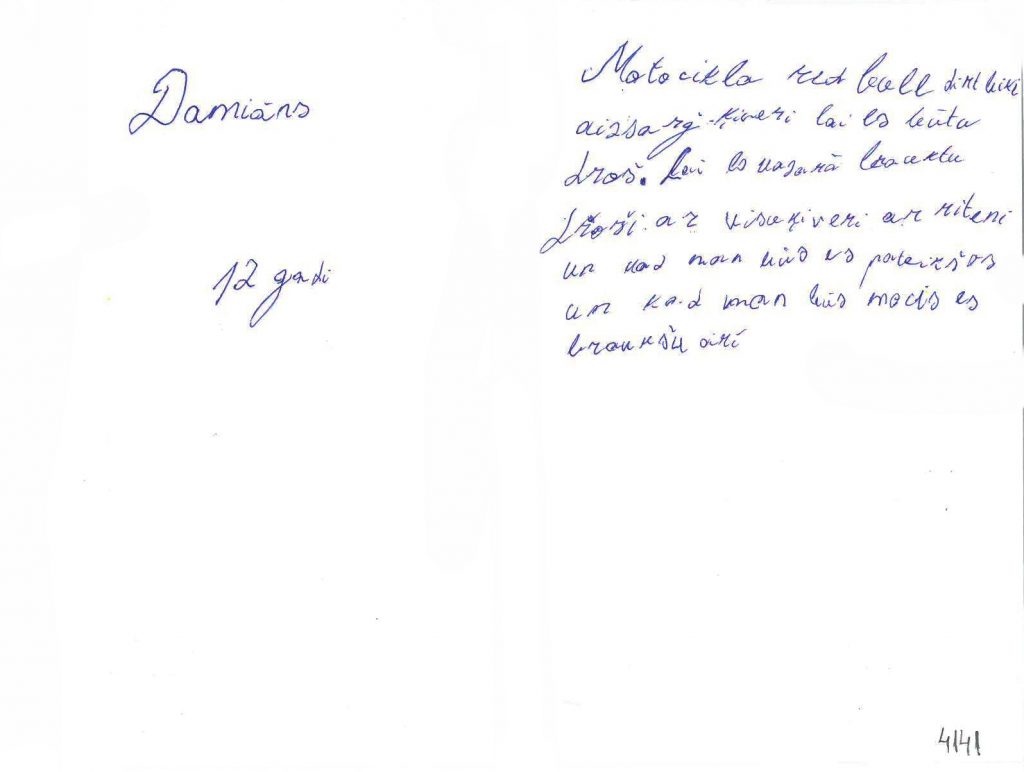 Damiāns
12 gadi
Motocikla red bull
aizsarg-ķiveri lai es būtu
droš. Lai es vasarā brauktu
droši ar visu ķiveri ar riteni
un kad man būs es pateikšos
un kad man būs mocis es
braukšu arī
4141